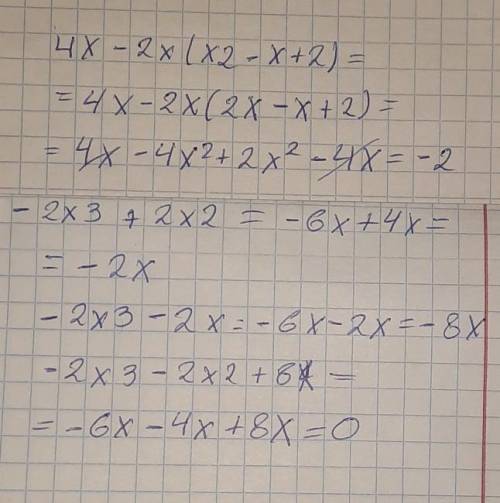 4x - 2x(x2 - x + 2) =
= 4x - 2x(2x - x + 2) =
= 4x - 4x² + 2x² - 4x = -2
- 2x3 + 2x2 = -6x + 4x =
= - 2x
- 2x3 - 2x = -6x - 2x = -8x
- 2x3 - 2x2 + 8x =
= -6x - 4x + 8x = 0